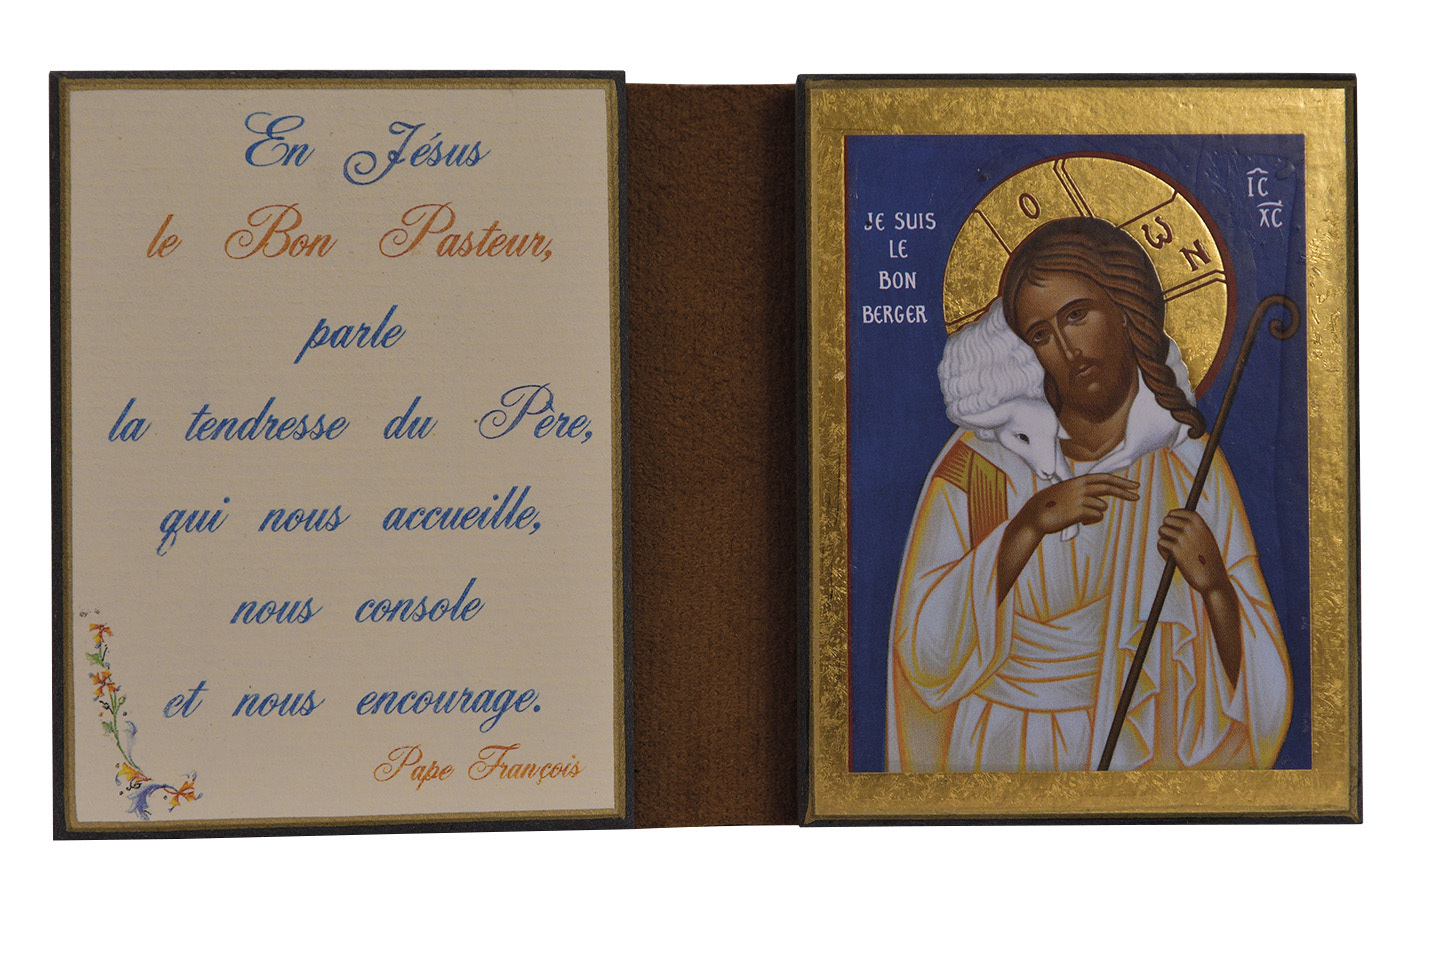 En Jésus
le Bon Pasteur,
parle
la tendresse du Père,
qui nous accueille,
nous console
et nous encourage.
Pape François
JE SUIS
LE
BON
BERGER
Ο Ω Ν
ΙC
ΧC